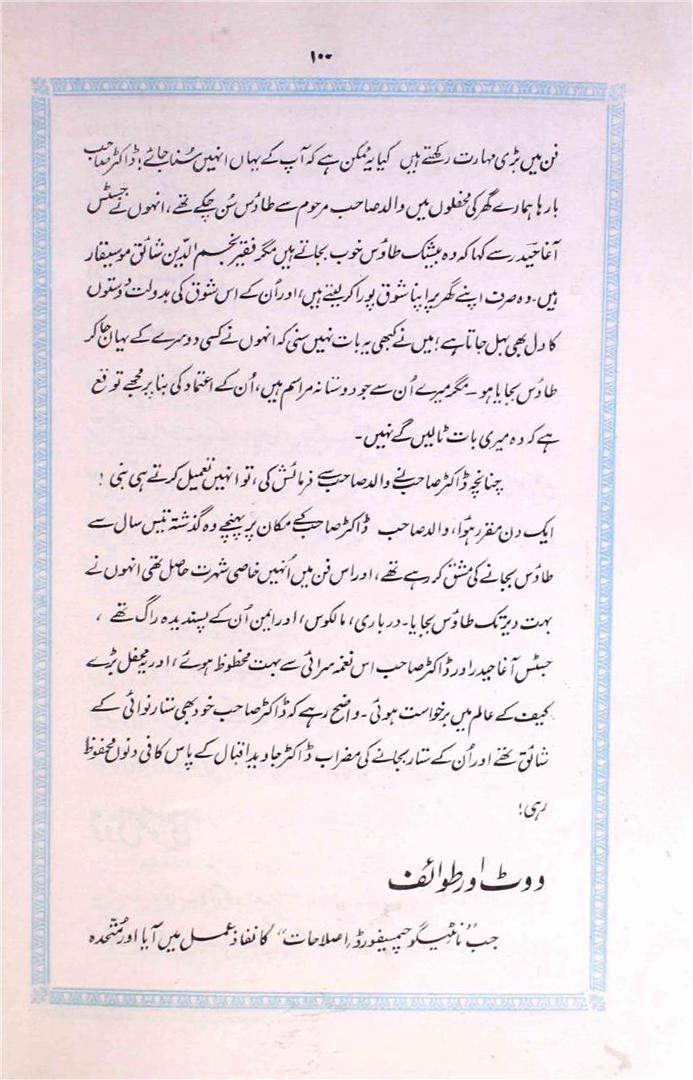 ۱۰۰
فن میں بڑی مہارت رکھتے ہیں کیا یہ ممکن ہے کہ آپ کے یہاں انہیں سُنا جائے؛ ڈاکٹر صاحب
بارہا ہمارے گھر کی محفلوں میں والد صاحب مرحوم سے طاؤس سُن چکے تھے، انہوں نے جسٹس
آغا حیدر سے کہا کہ وہ بیشک طاؤس خوب بجاتے ہیں مگر فقیر نجم الدّین شائق موسیقار
ہیں۔ وہ صرف اپنے گھر پر اپنا شوق پورا کر لیتے ہیں، اور اُن کے اس شوق کی بدولت دوستوں
کا دل بھی بہل جاتا ہے؛ میں نے کبھی یہ بات نہیں سنی کہ انہوں نے کسی دوسرے کے یہاں جا کر
طاؤس بجایا ہو ۔ مگر میرے اُن سے جو دوستانہ مراسم ہیں، اُن کے اعتماد کی بنا پر مجھے توقع
ہے کہ وہ میری بات ٹالیں گے نہیں۔
چنانچہ ڈاکٹر صاحب نے والد صاحب سے فرمائش کی، تو انہیں تعمیل کرتے ہی بنی !
ایک دن مقرر ہوا، والد صاحب ڈاکٹر صاحب کے مکان پر پہنچے وہ گذشتہ تیس سال سے
طاؤس بجانے کی مشق کر رہے تھے، اور اس فن میں اُنہیں خاصی شہرت حاصل تھی انہوں نے
بہت دیر تک طاؤس بجایا۔ درباری، مالکوس، اور ایمن اُن کے پسندیدہ راگ تھے ،
جسٹس آغا حیدر اور ڈاکٹر صاحب اس نغمہ سرائی سے بہت محظوظ ہوئے، اور یہ محفل بڑے
کیف کے عالم میں برخواست ہوئی۔ واضح رہے کہ ڈاکٹر صاحب خود بھی ستار نوائی کے
شائق تھے اور اُن کے ستار بجانے کی مضراب ڈاکٹر جاوید اقبال کے پاس کافی دنوں محفوظ
رہی؛
ووٹ اور طوائف
جب ”مانٹیگو چیمسفورڈ اصلاحات“ کا نفاذ عمل میں آیا اور مُتحدہ